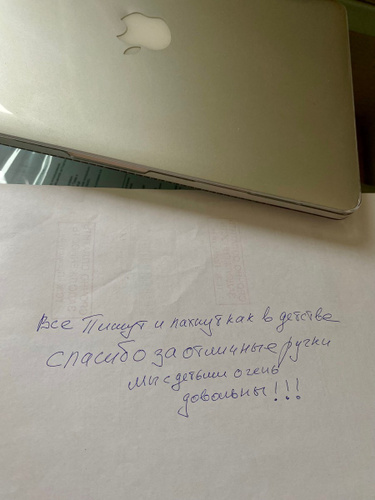 Все Пишут и пахнут как в детстве
спасибо за отличные ручки
мы с детьми очень
довольны!!!